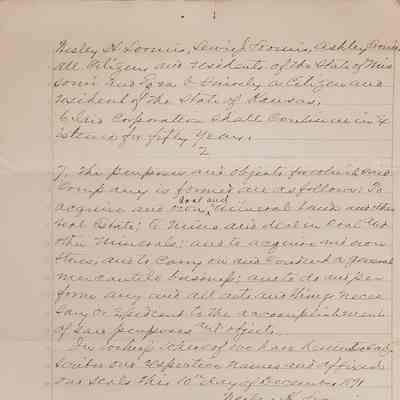 Wesley H Loomis, Lewis J Loomis, Ashley Loomis
all Citizens and residents of the State of Mis
souri and Ezra O Smiely a Citizen and
resident of the State of Kansas.
6 Said Corporation shall Continue in Ex
istence for fifty Years.
2
7. The purposes and objects for which said
Company is formed are as follows: To
coal and
acquire and own, Mineral lands and other
real Estate; to Mine and deal in Coal and
other Minerals: and to acquire and own
Stores, and to Carry on and Conduct a general
mercantile business; and to do and per
form any and all acts and things neces
sary or Expedient to the accomplishment
of said purposes and objects.
In testimony whereof we have hereunto sub
scribed our respective names and affixed
our seals this 10th day of December 1891